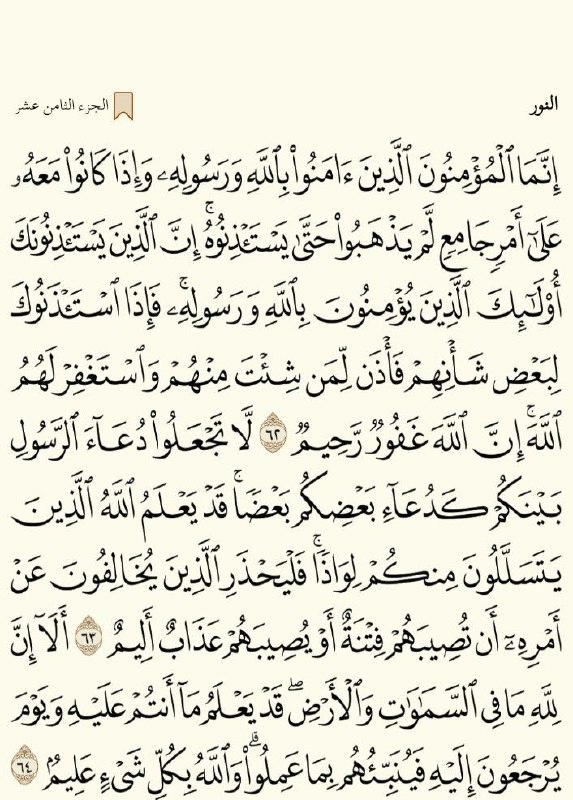 النور
الجزء الثامن عشر
إِنَّمَا ٱلْمُؤْمِنُونَ ٱلَّذِينَ ءَامَنُوا۟ بِٱللَّهِ وَرَسُولِهِۦ وَإِذَا كَانُوا۟ مَعَهُۥ
عَلَىٰٓ أَمْرٍ جَامِعٍ لَّمْ يَذْهَبُوا۟ حَتَّىٰ يَسْتَـْٔذِنُوهُ ۚ إِنَّ ٱلَّذِينَ يَسْتَـْٔذِنُونَكَ
أُو۟لَـٰٓئِكَ ٱلَّذِينَ يُؤْمِنُونَ بِٱللَّهِ وَرَسُولِهِۦ ۚ فَإِذَا ٱسْتَـْٔذَنُوكَ
لِبَعْضِ شَأْنِهِمْ فَأْذَن لِّمَن شِئْتَ مِنْهُمْ وَٱسْتَغْفِرْ لَهُمُ
ٱللَّهَ ۚ إِنَّ ٱللَّهَ غَفُورٌ رَّحِيمٌ ٦٢ لَّا تَجْعَلُوا۟ دُعَآءَ ٱلرَّسُولِ
بَيْنَكُمْ كَدُعَآءِ بَعْضِكُم بَعْضًا ۚ قَدْ يَعْلَمُ ٱللَّهُ ٱلَّذِينَ
يَتَسَلَّلُونَ مِنكُمْ لِوَاذًا ۚ فَلْيَحْذَرِ ٱلَّذِينَ يُخَالِفُونَ عَنْ
أَمْرِهِۦٓ أَن تُصِيبَهُمْ فِتْنَةٌ أَوْ يُصِيبَهُمْ عَذَابٌ أَلِيمٌ ٦٣ أَلَآ إِنَّ
لِلَّهِ مَا فِى ٱلسَّمَـٰوَٰتِ وَٱلْأَرْضِ ۖ قَدْ يَعْلَمُ مَآ أَنتُمْ عَلَيْهِ وَيَوْمَ
يُرْجَعُونَ إِلَيْهِ فَيُنَبِّئُهُم بِمَا عَمِلُوا۟ ۗ وَٱللَّهُ بِكُلِّ شَىْءٍ عَلِيمٌۢ ٦٤